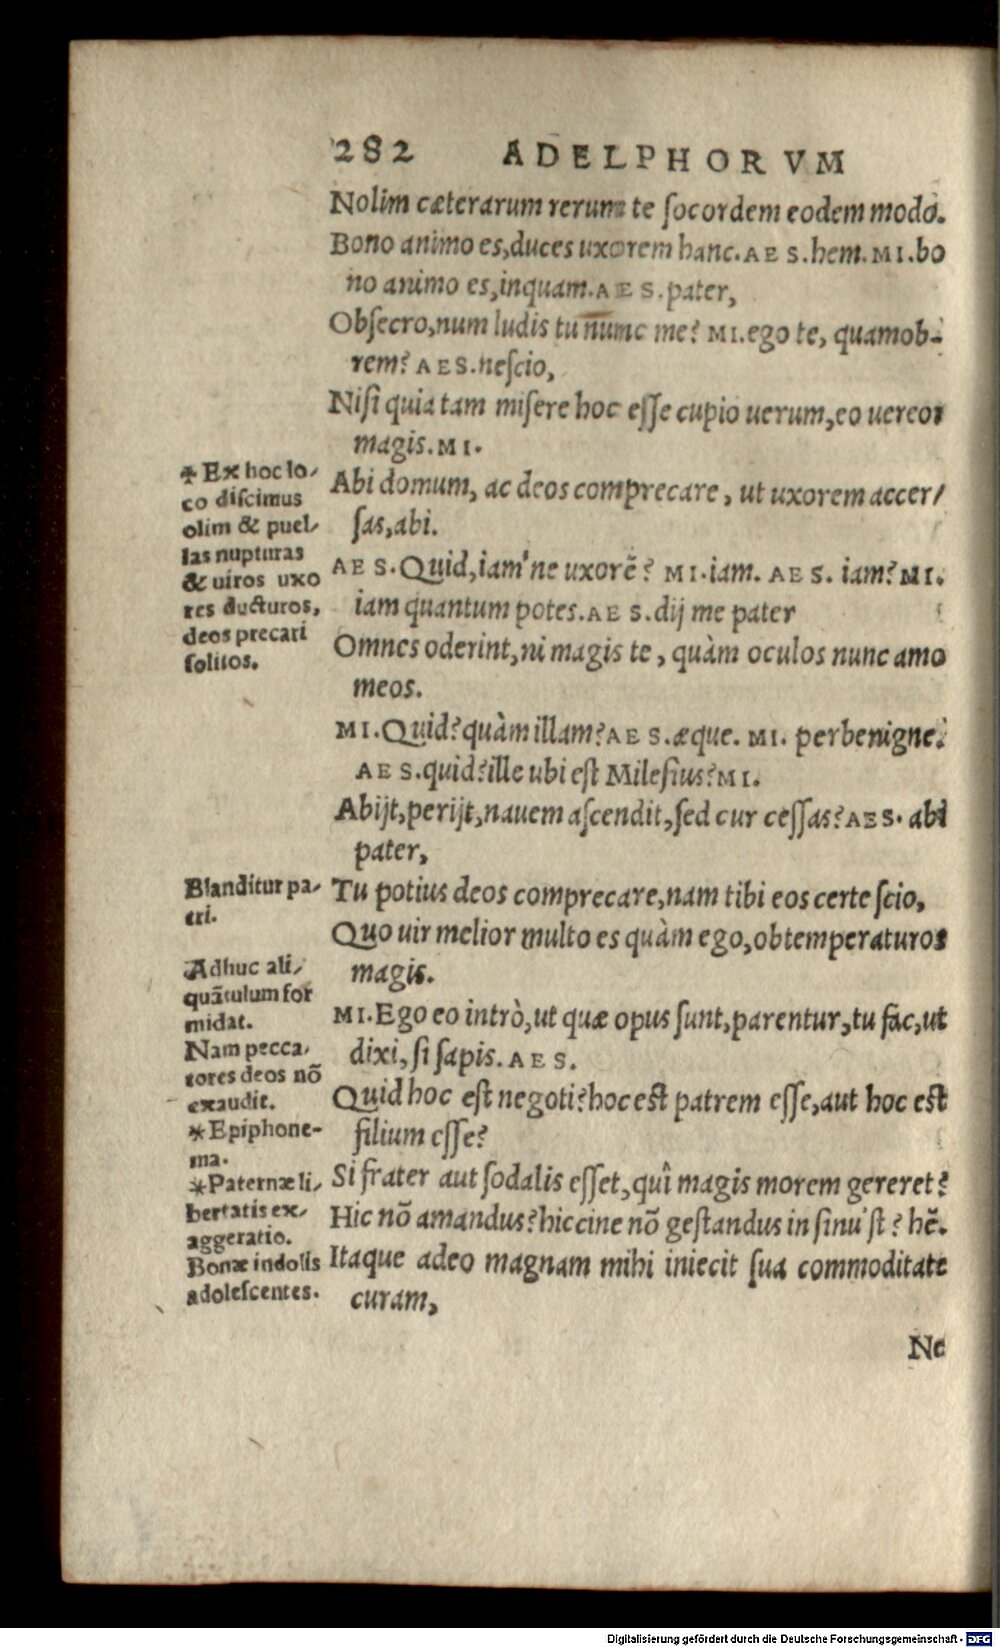 282 ADELPHORVM
Nolim cæterarum rerum te ſocordem eodem modo.
Bono animo es, duces uxorem hanc. AES. hem. MI. bo
no animo es, inquam. AES. pater,
Obſecro, num ludis tu nunc me? MI. ego te, quamob-
rem? AES. neſcio,
Niſi quia tam miſere hoc eſſe cupio uerum, eo uereor
magis. MI.
Abi domum, ac deos comprecare, ut uxorem accer/
ſas, abi.
AES. Quid, iam'ne uxorē? MI. iam. AES. iam? MI.
iam quantum potes. AES. dij me pater
Omnes oderint, ni magis te, quàm oculos nunc amo
meos.
MI. Quid? quàm illam? AES. æque. MI. perbenigne.
AES. quid? ille ubi eſt Mileſius? MI.
Abijt, perijt, nauem aſcendit, ſed cur ceſſas? AES. abi
pater,
Tu potius deos comprecare, nam tibi eos certe ſcio,
Quo uir melior multo es quàm ego, obtemperaturos
magis.
MI. Ego eo intrò, ut quæ opus ſunt, parentur, tu fac, ut
dixi, ſi ſapis. AES.
Quid hoc eſt negoti? hoc eſt patrem eſſe, aut hoc eſt
filium eſſe?
Si frater aut ſodalis eſſet, quî magis morem gereret?
Hic nō amandus? hiccine nō geſtandus in ſinu'ſt? hē.
Itaque adeo magnam mihi iniecit ſua commoditate
curam,
Ne
✣ Ex hoc lo/
co diſcimus
olim & puel/
las nupturas
& uiros uxo
res ducturos,
deos precari
ſolitos.
Blanditur pa/
tri.
Adhuc ali/
quātulum for
midat.
Nam pecca/
tores deos nō
exaudit.
* Epiphone-
ma.
* Paternæ li/
bertatis ex/
aggeratio.
Bonæ indolis
adoleſcentes.
Digitalisierung gefördert durch die Deutsche Forschungsgemeinschaft - DFG